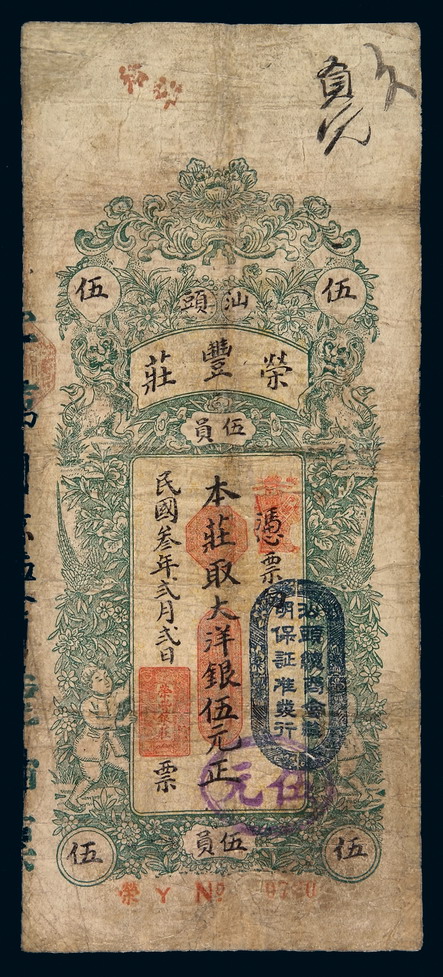 伍 伍
汕頭
榮豐莊
伍員
憑票
本莊取大洋銀伍元正
民國叁年弍月弍日
票
汕頭總商會証
明保証准發行
伍元
伍 伍員 伍
榮 Y No